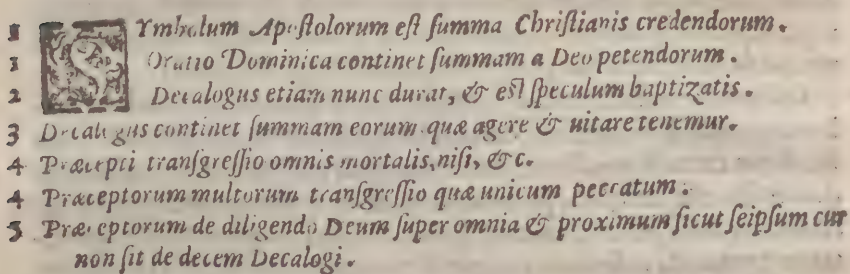 1 SYmbolum Apostolorum est summa Christianis credendorum.
1 Oratio Dominica continet summam a Deo petendorum.
2 Decalogus etiam nunc durat, & est speculum baptizatis.
3 Decalogus continet summam eorum quæ agere & uitare tenemur.
4 Præcepti transgressio omnis mortalis, nisi, &c.
4 Præceptorum multorum transgressio quæ unicum peccatum.
5 Præceptorum de diligendo Deum super omnia & proximum sicut seipsum cur
non sit de decem Decalogi.